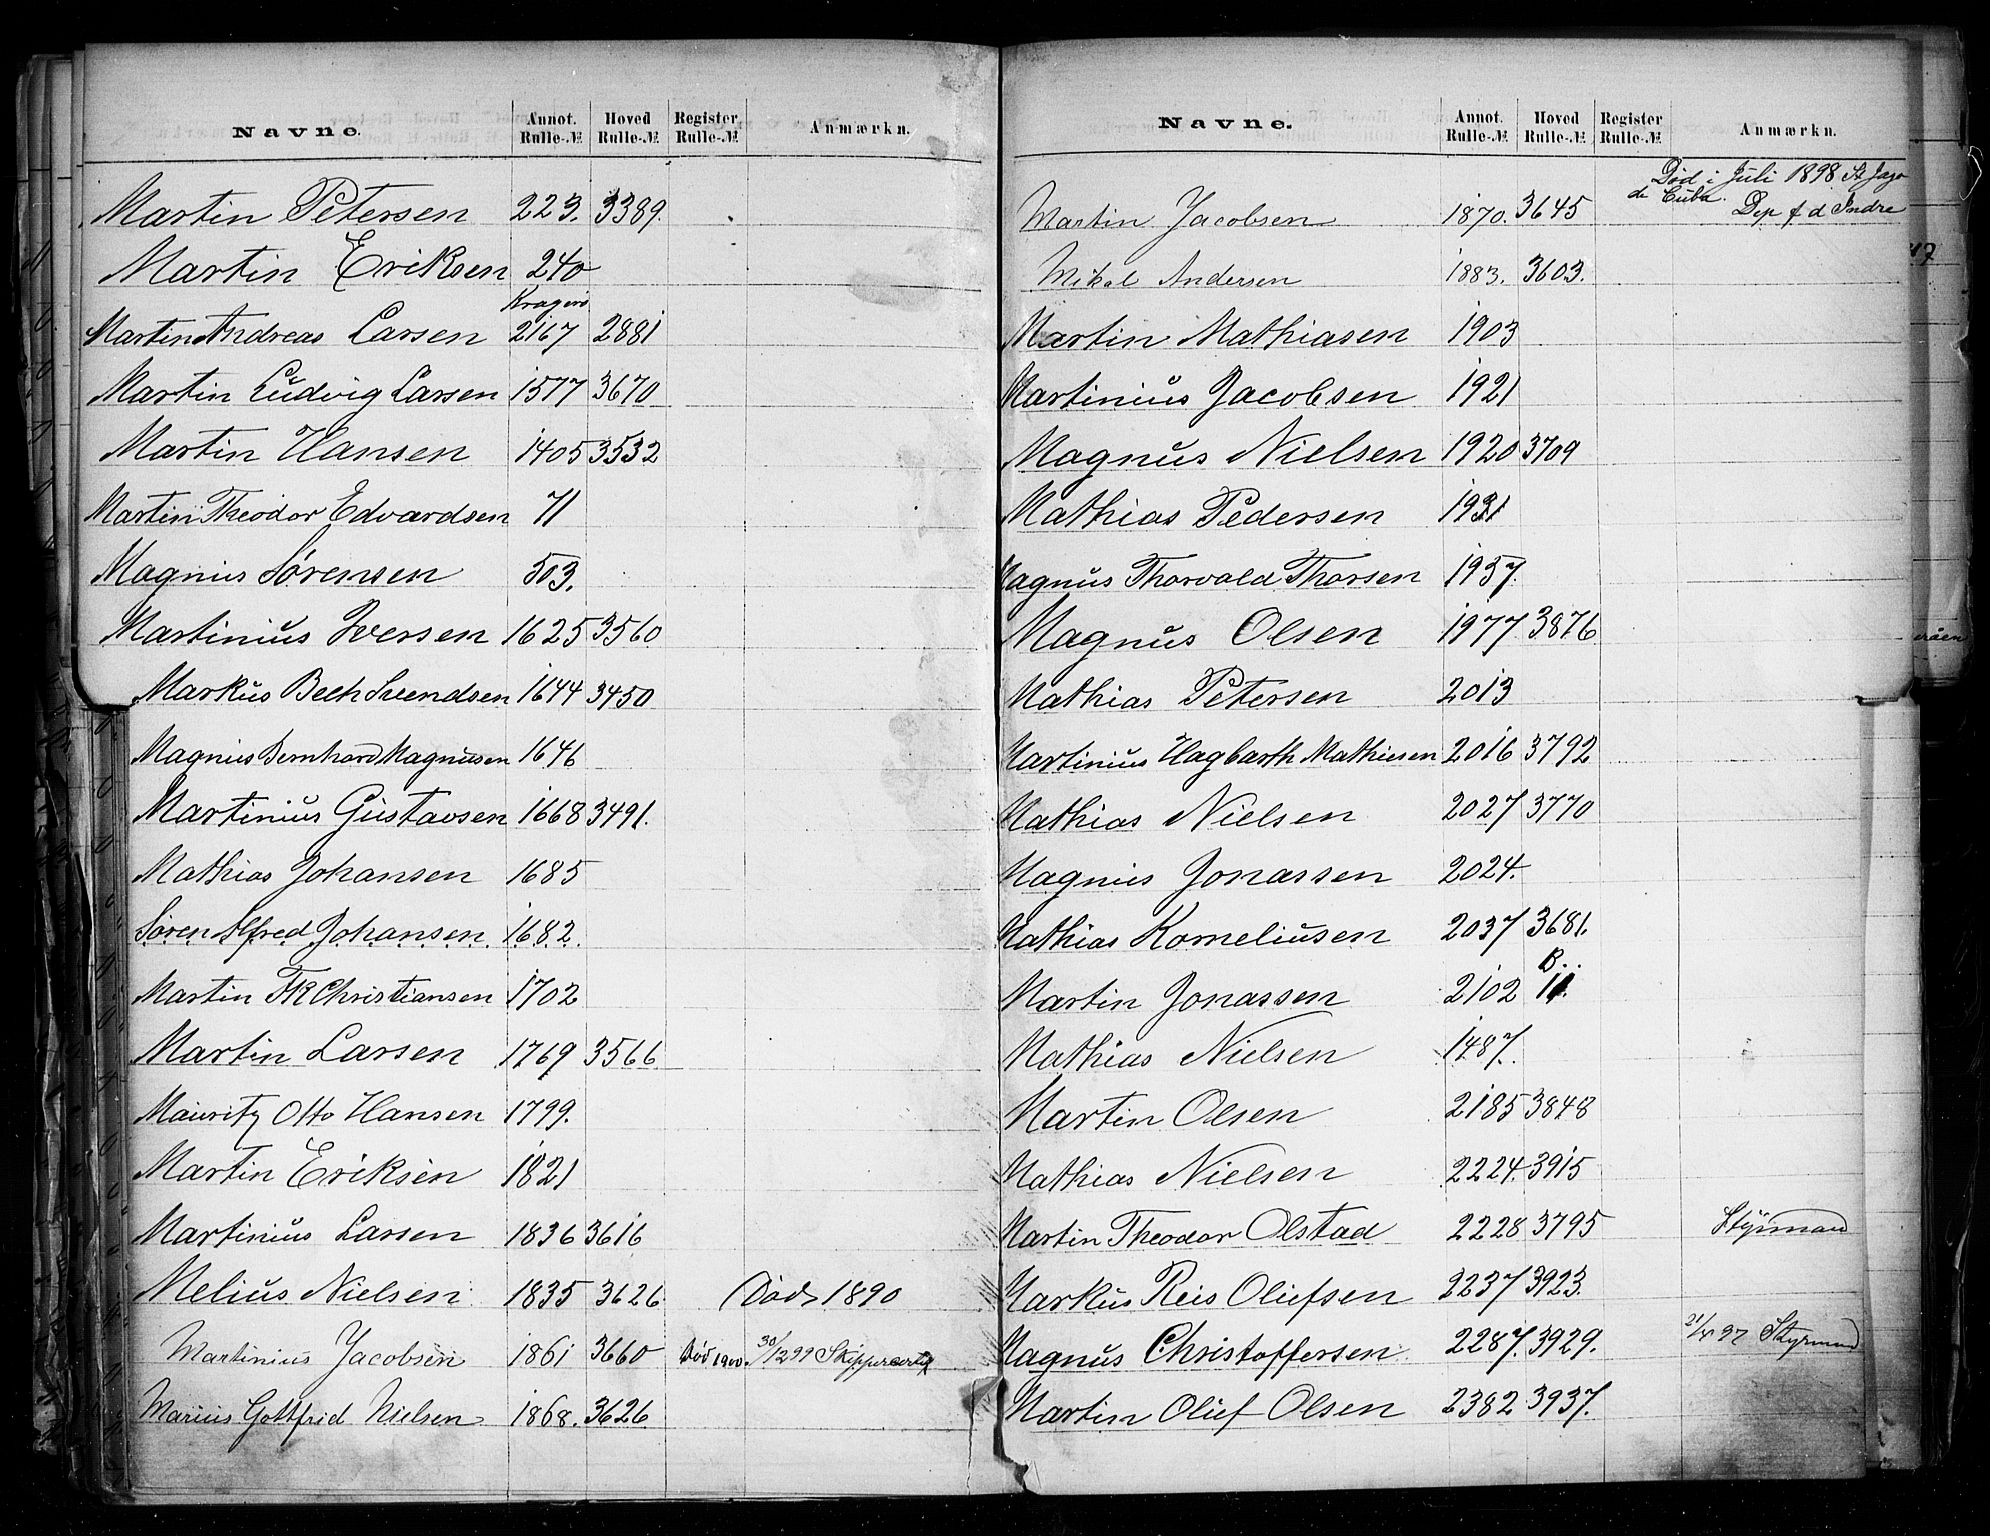 Navne. Annot. Rulle-№ Hoved Rulle-№ Register Rulle-№ Anmærkn.
Martin Petersen 223. 3389.
Martin Eriksen 240
Kragerø
Martin Andreas Larsen 2167 2881
Martin Ludvig Larsen 1577 3670
Martin Hansen 1405 3532
Martin Theodor Edvardsen 71
Magnus Sørensen 503.
Martinius Iversen 1625 3560
Markus Bech Svendsen 1644 3450
Magnus Bernhard Magnusen 1646
Martinius Gustavsen 1668 3491.
Mathias Johansen 1685
Søren Alfred Johansen. 1682.
Martin FR Christiansen 1702
Martin Larsen 1769 3566
Mauritz Otto Hansen 1799.
Martin Eriksen 1821
Martinius Larsen 1836 3616
Melius Nielsen 1835 3626 Død 1890
Martinius Jacobsen 1861 3660 Død 1900. 30/12 99 Skippercertif
Marius Gottfrid Nielsen 1868. 3626
Navne. Annot. Rulle-№ Hoved Rulle-№ Register Rulle-№ Anmærkn.
Død i Juli 1898 St Jago
de Cuba. Dep f d Indre
Martin Jacobsen 1870. 3645
Mikal Andersen 1883. 3603.
Martin Mathiasen 1903
Martinius Jacobsen 1921
Magnus Nielsen 1920 3709
Mathias Pedersen 1931
Magnus Thorvald Thorsen 1937.
Magnus Olsen 1977 3876
Mathias Petersen 2013
Martinius Hagbarth Mathiesen 2016 3792
Mathias Nielsen 2027 3770
Magnus Jonassen 2024.
Mathias Korneliusen 2037 3681.
B..
Martin Jonassen 2102 11.
Mathias Nielsen 1487.
Martin Olsen 2185 3848
Mathias Nielsen 2224. 3915
Martin Theodor Olstad 2228 3795 Styrman
Markus Reis Olufsen 2237 3923.
Magnus Christoffersen 2287. 3929. 97 Styrmand
Martin Oluf Olsen 2382 3937.